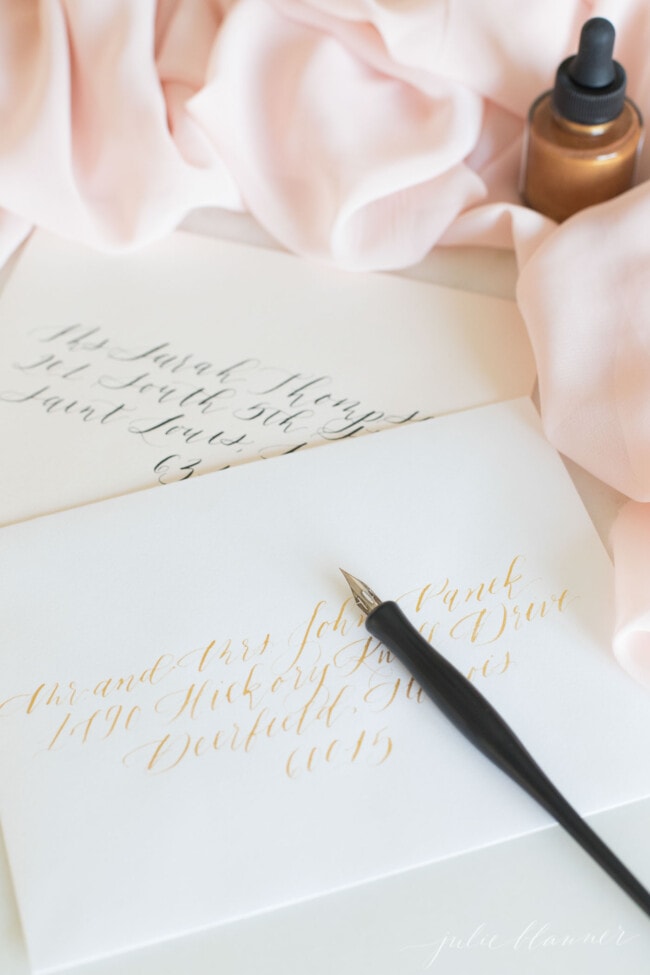 Ms Sarah Thomps
201 South 5th
Saint Louis,
63
Mr and Mrs John Panek
Hickory Drive
Deerfield, Illinois
60015
julie blanner